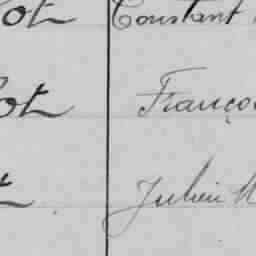 ot Constant
ot Franço
t Julien M